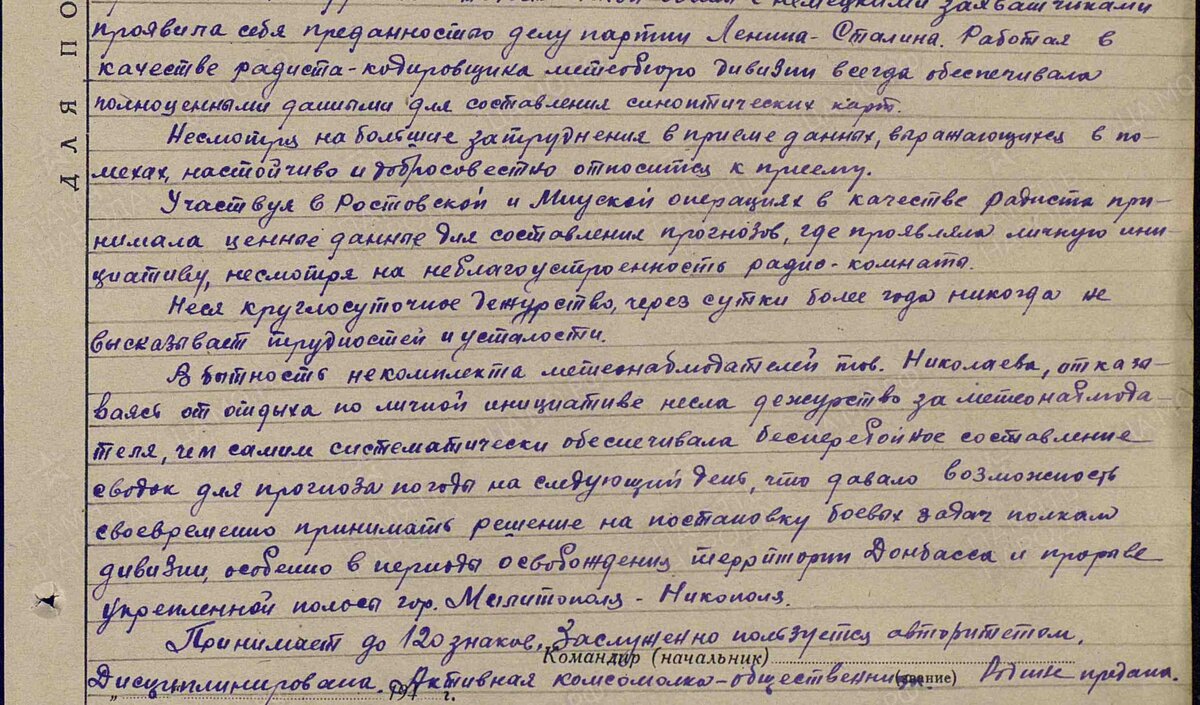 немецкими захватчиками
проявила себя преданностью делу партии Ленина-Сталина. Работая в
качестве радиста-кодировщика метеобюро дивизии всегда обеспечивала
полноценными данными для составления синоптических карт.
Несмотря на большие затруднения в приеме данных, выражающихся в по-
мехах, настойчиво и добросовестно относится к приему.
Участвуя в Ростовской и Миуской операциях в качестве радиста при-
нимала ценные данные для составления прогнозов, где проявляла личную ини-
циативу, несмотря на неблагоустроенность радио-комнаты.
Неся круглосуточное дежурство, через сутки более года никогда не
высказывает трудностей и усталости.
В бытность некомплекта метеонаблюдателей тов. Николаева, отказы-
ваясь от отдыха по личной инициативе несла дежурство за метеонаблюда-
теля, чем самим систематически обеспечивала бесперебойное составление
сводок для прогноза погоды на следующий день, что давало возможность
своевременно принимать решение на постановку боевых задач полкам
дивизии, особенно в периоды освобождения территории Донбасса и прорыве
укрепленной полосы гор. Мелитополя - Никополя.
Принимает до 120 знаков. Заслуженно пользуется авторитетом.
Командир (начальник)
Дисциплинирована. Активная комсомолка-общественница. Родине предана.
(звание)
194 г.
ДЛЯ ПО